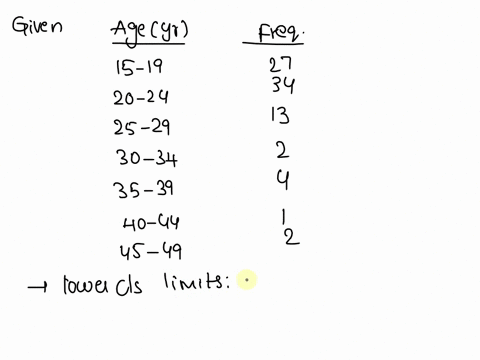 Given Age(yr) Freq.
15-19 27
20-24 34
25-29 13
30-34 2
35-39 4
40-44 1
45-49 2
→ lower cls limits: